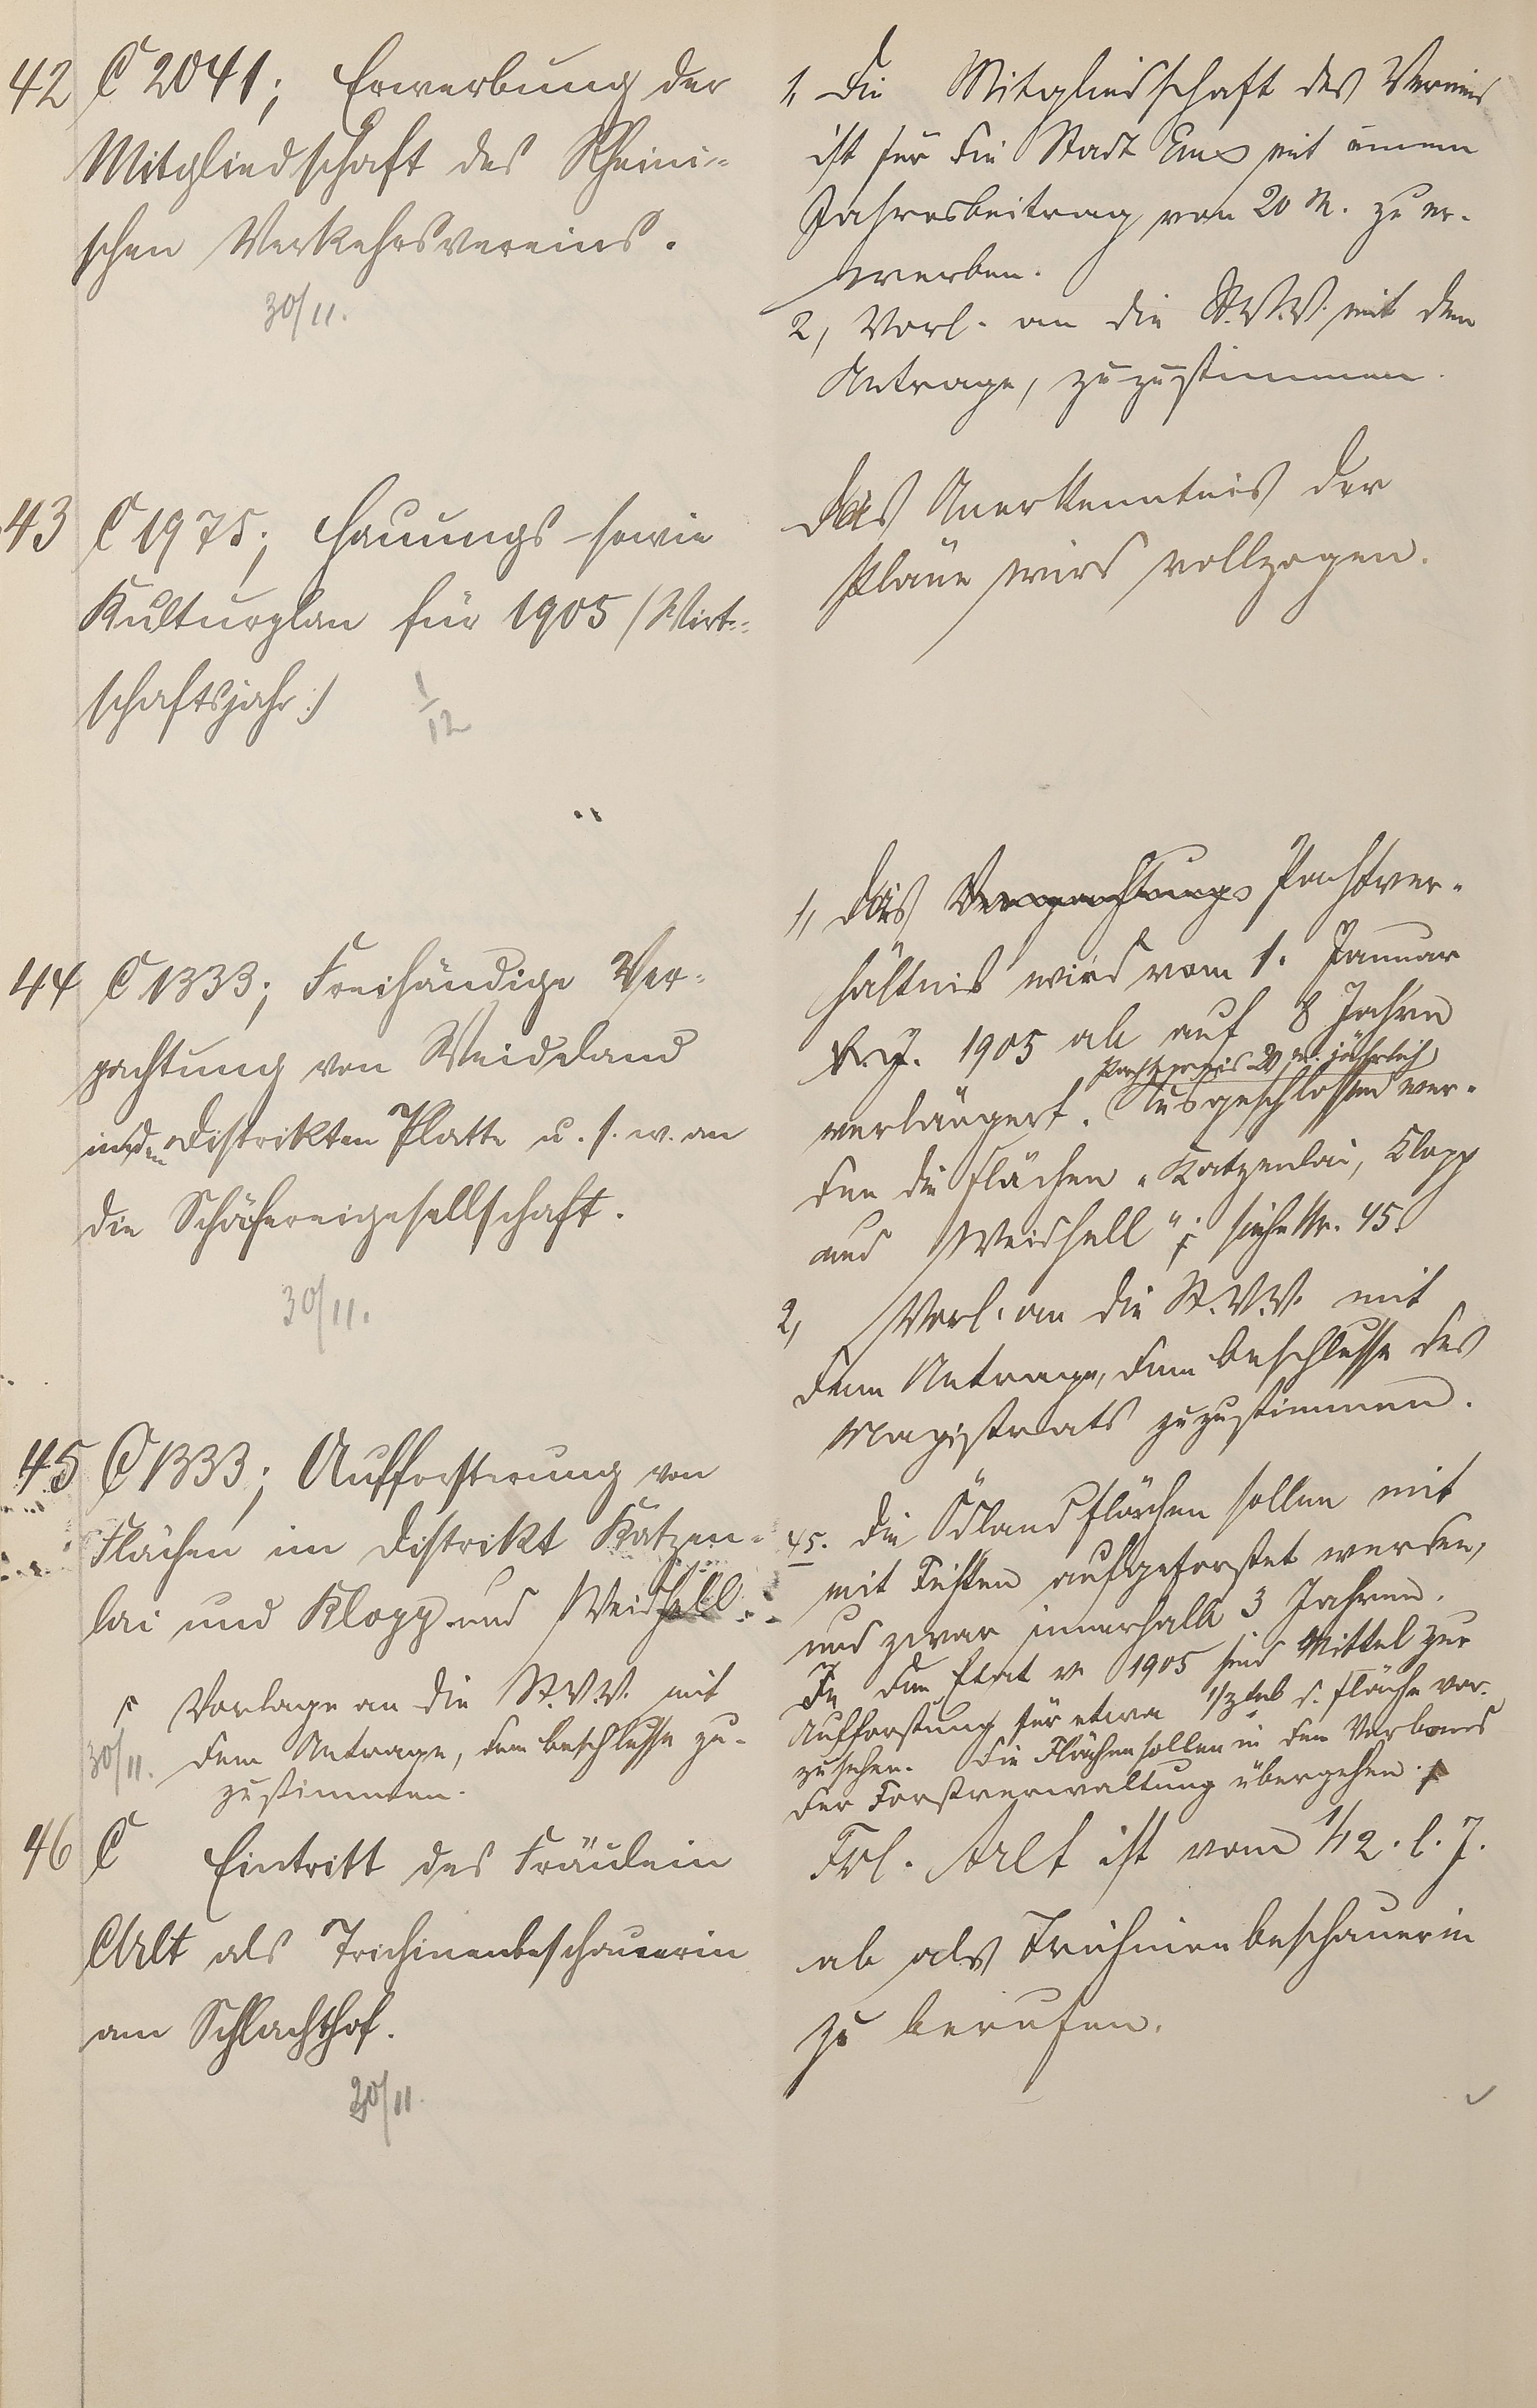 42 C 2041; Erwerbung der
Mitgliedschaft des Rheini-
schen Verkehrsvereins.
30/11.
1, Die Mitgliedschaft des Vereins
ist für die Stadt Ems mit einem
Jahresbeitrag von 20 M. zu er-
werben.
2, Vorl. an die St.V.V. mit dem
Antrage, zuzustimmen.
43 C 1975; Hauungs- sowie
Kulturplan für 1905 (Wirt-
schaftsjahr:)
1/12
Das Anerkenntnis der
Pläne wird vollzogen.
44 C 1333; Freihändige Ver-
pachtung von Weideland
in den Distrikten Platte u. s. w. an
die Schäfereigesellschaft.
30/11.
1, Das Verpachtungs Pachtver-
hältnis wird vom 1. Januar
k. J. 1905 ab auf 8 Jahre
Pachtpreis 20 M. jährlich
verlängert. Ausgeschlossen wer-
den die Flächen „Katzenlai, Klopp
und Weidhell"; siehe Nr. 45.
2, Vorl. an die St.V.V. mit
dem Antrage, dem Beschlusse des
Magistrats zuzustimmen.
45 C 1333; Aufforstung von
Flächen im Distrikt Katzen-
lai und Klopp und Weidhell.
Vorlage an die St.V.V. mit
30/11. dem Antrage, dem Beschlusse zu-
zustimmen.
45. Die Ödlandflächen sollen mit
mit Fichten aufgeforstet werden,
und zwar innerhalb 3 Jahren.
In den Etat v. 1905 sind Mittel zur
Aufforstung für etwa 1/3 d. Fläche vor-
zusehen. Die Flächen sollen in den Verband
der Forstverwaltung übergehen.
46 C Eintritt des Fräulein
Alt als Trichinenbeschauerin
am Schlachthof.
30/11.
Frl. Alt ist vom 1/12. l. J.
ab als Trichinenbeschauerin
zu berufen.